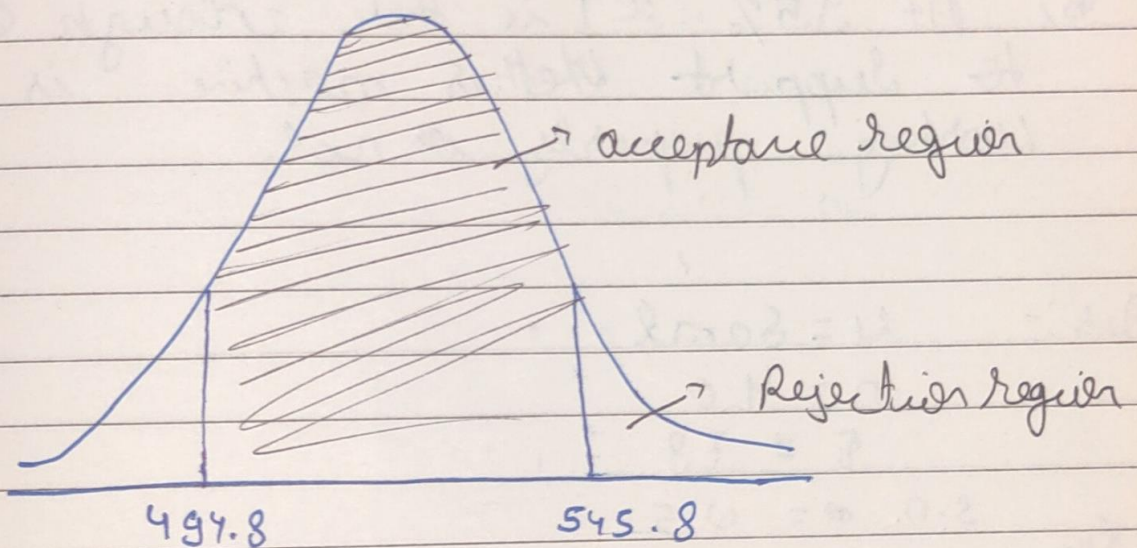 acceptance region
Rejection region
494.8
545.8